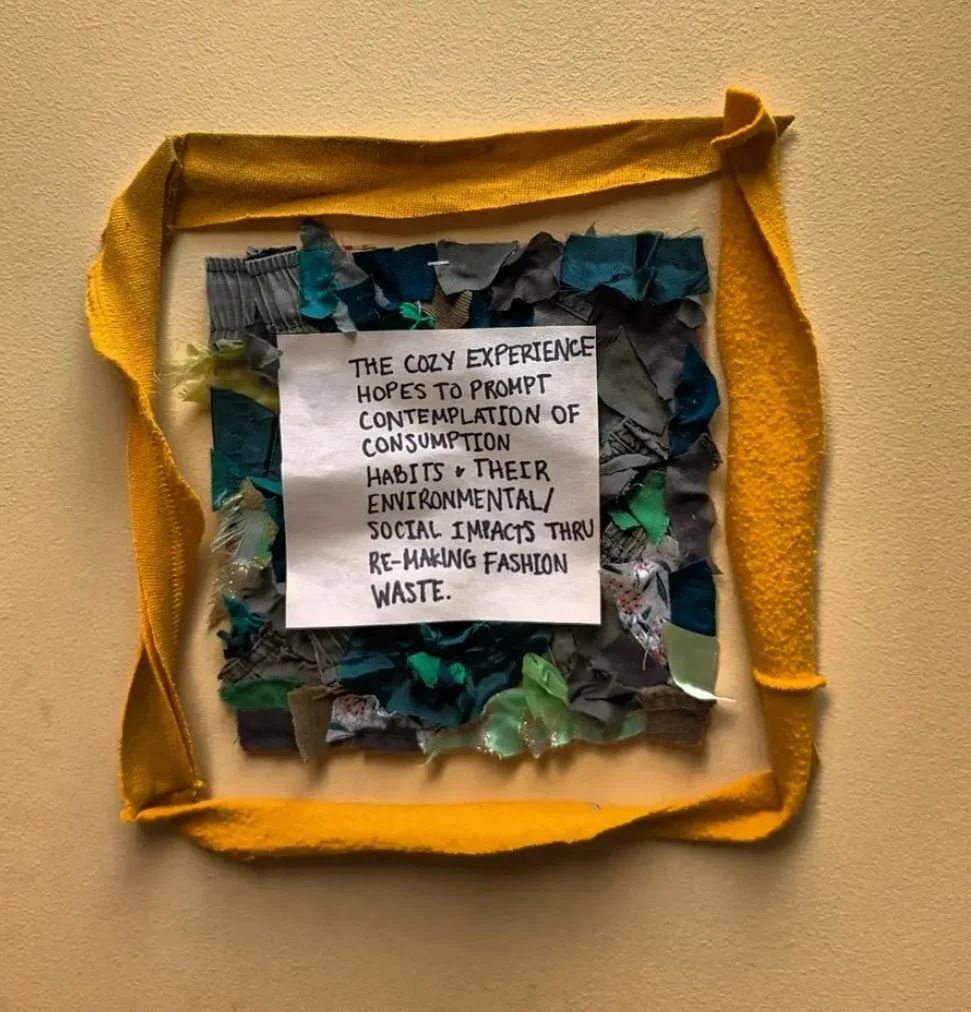 THE COZY EXPERIENCE
HOPES TO PROMPT
CONTEMPLATION OF
CONSUMPTION
HABITS & THEIR
ENVIRONMENTAL/
SOCIAL IMPACTS THRU
RE-MAKING FASHION
WASTE.